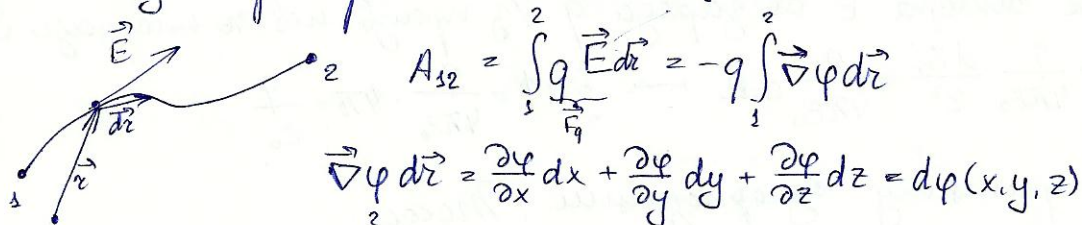 E⃗
1
2
dr⃗
r⃗
A₁₂ = ∫₁² q E⃗ dr⃗ = -q ∫₁² ∇⃗φ dr⃗
F⃗q
∇⃗φ dr⃗ = ∂φ/∂x dx + ∂φ/∂y dy + ∂φ/∂z dz = dφ(x,y,z)
2